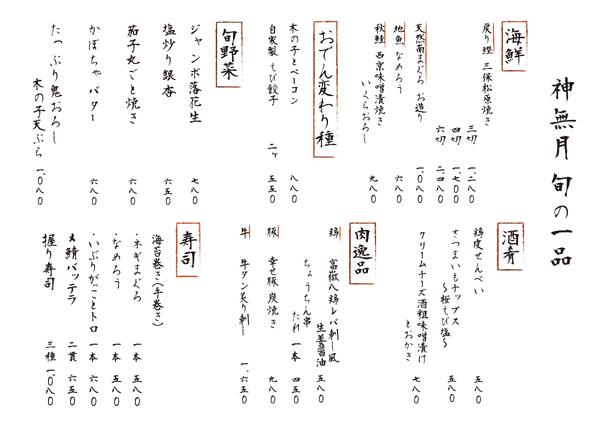 神無月 旬の一品
海鮮
戻り鰹 三保松原焼き
三切 一、二八〇
四切 一、七〇〇
六切 二、四八〇
天然南まぐろ お造り 一、〇八〇
地魚 なめろう 六八〇
秋鮭 西京味噌漬焼き
いくらおろし 九八〇
おでん変わり種
木の子とベーコン 八八〇
自家製 えび餃子 二ヶ 五五〇
旬野菜
ジャンボ落花生 七八〇
塩炒り銀杏 六五〇
茄子丸ごと焼き 六八〇
かぼちゃバター 六八〇
たっぷり鬼おろし
木の子天ぷら 一、〇八〇
酒肴
鶏皮せんべい 五八〇
さつまいもチップス
〜桜えび塩〜 五八〇
クリームチーズ酒粗味噌漬け
とおかき 七八〇
肉逸品
鶏 富嶽八鶏レバ刺し風
生姜醤油 五八〇
ちょうちん串
たれ 一本 四五〇
豚 幸せ豚 炭焼き 九八〇
牛 牛タン炙り刺し 一、六五〇
寿司
海苔巻き(手巻き)
・ネギまぐろ 一本 五八〇
・なめろう 一本 五八〇
・いぶりがっことトロ 一本 六八〇
〆鯖バッテラ 二貫 六五〇
握り寿司 三種 一、〇八〇